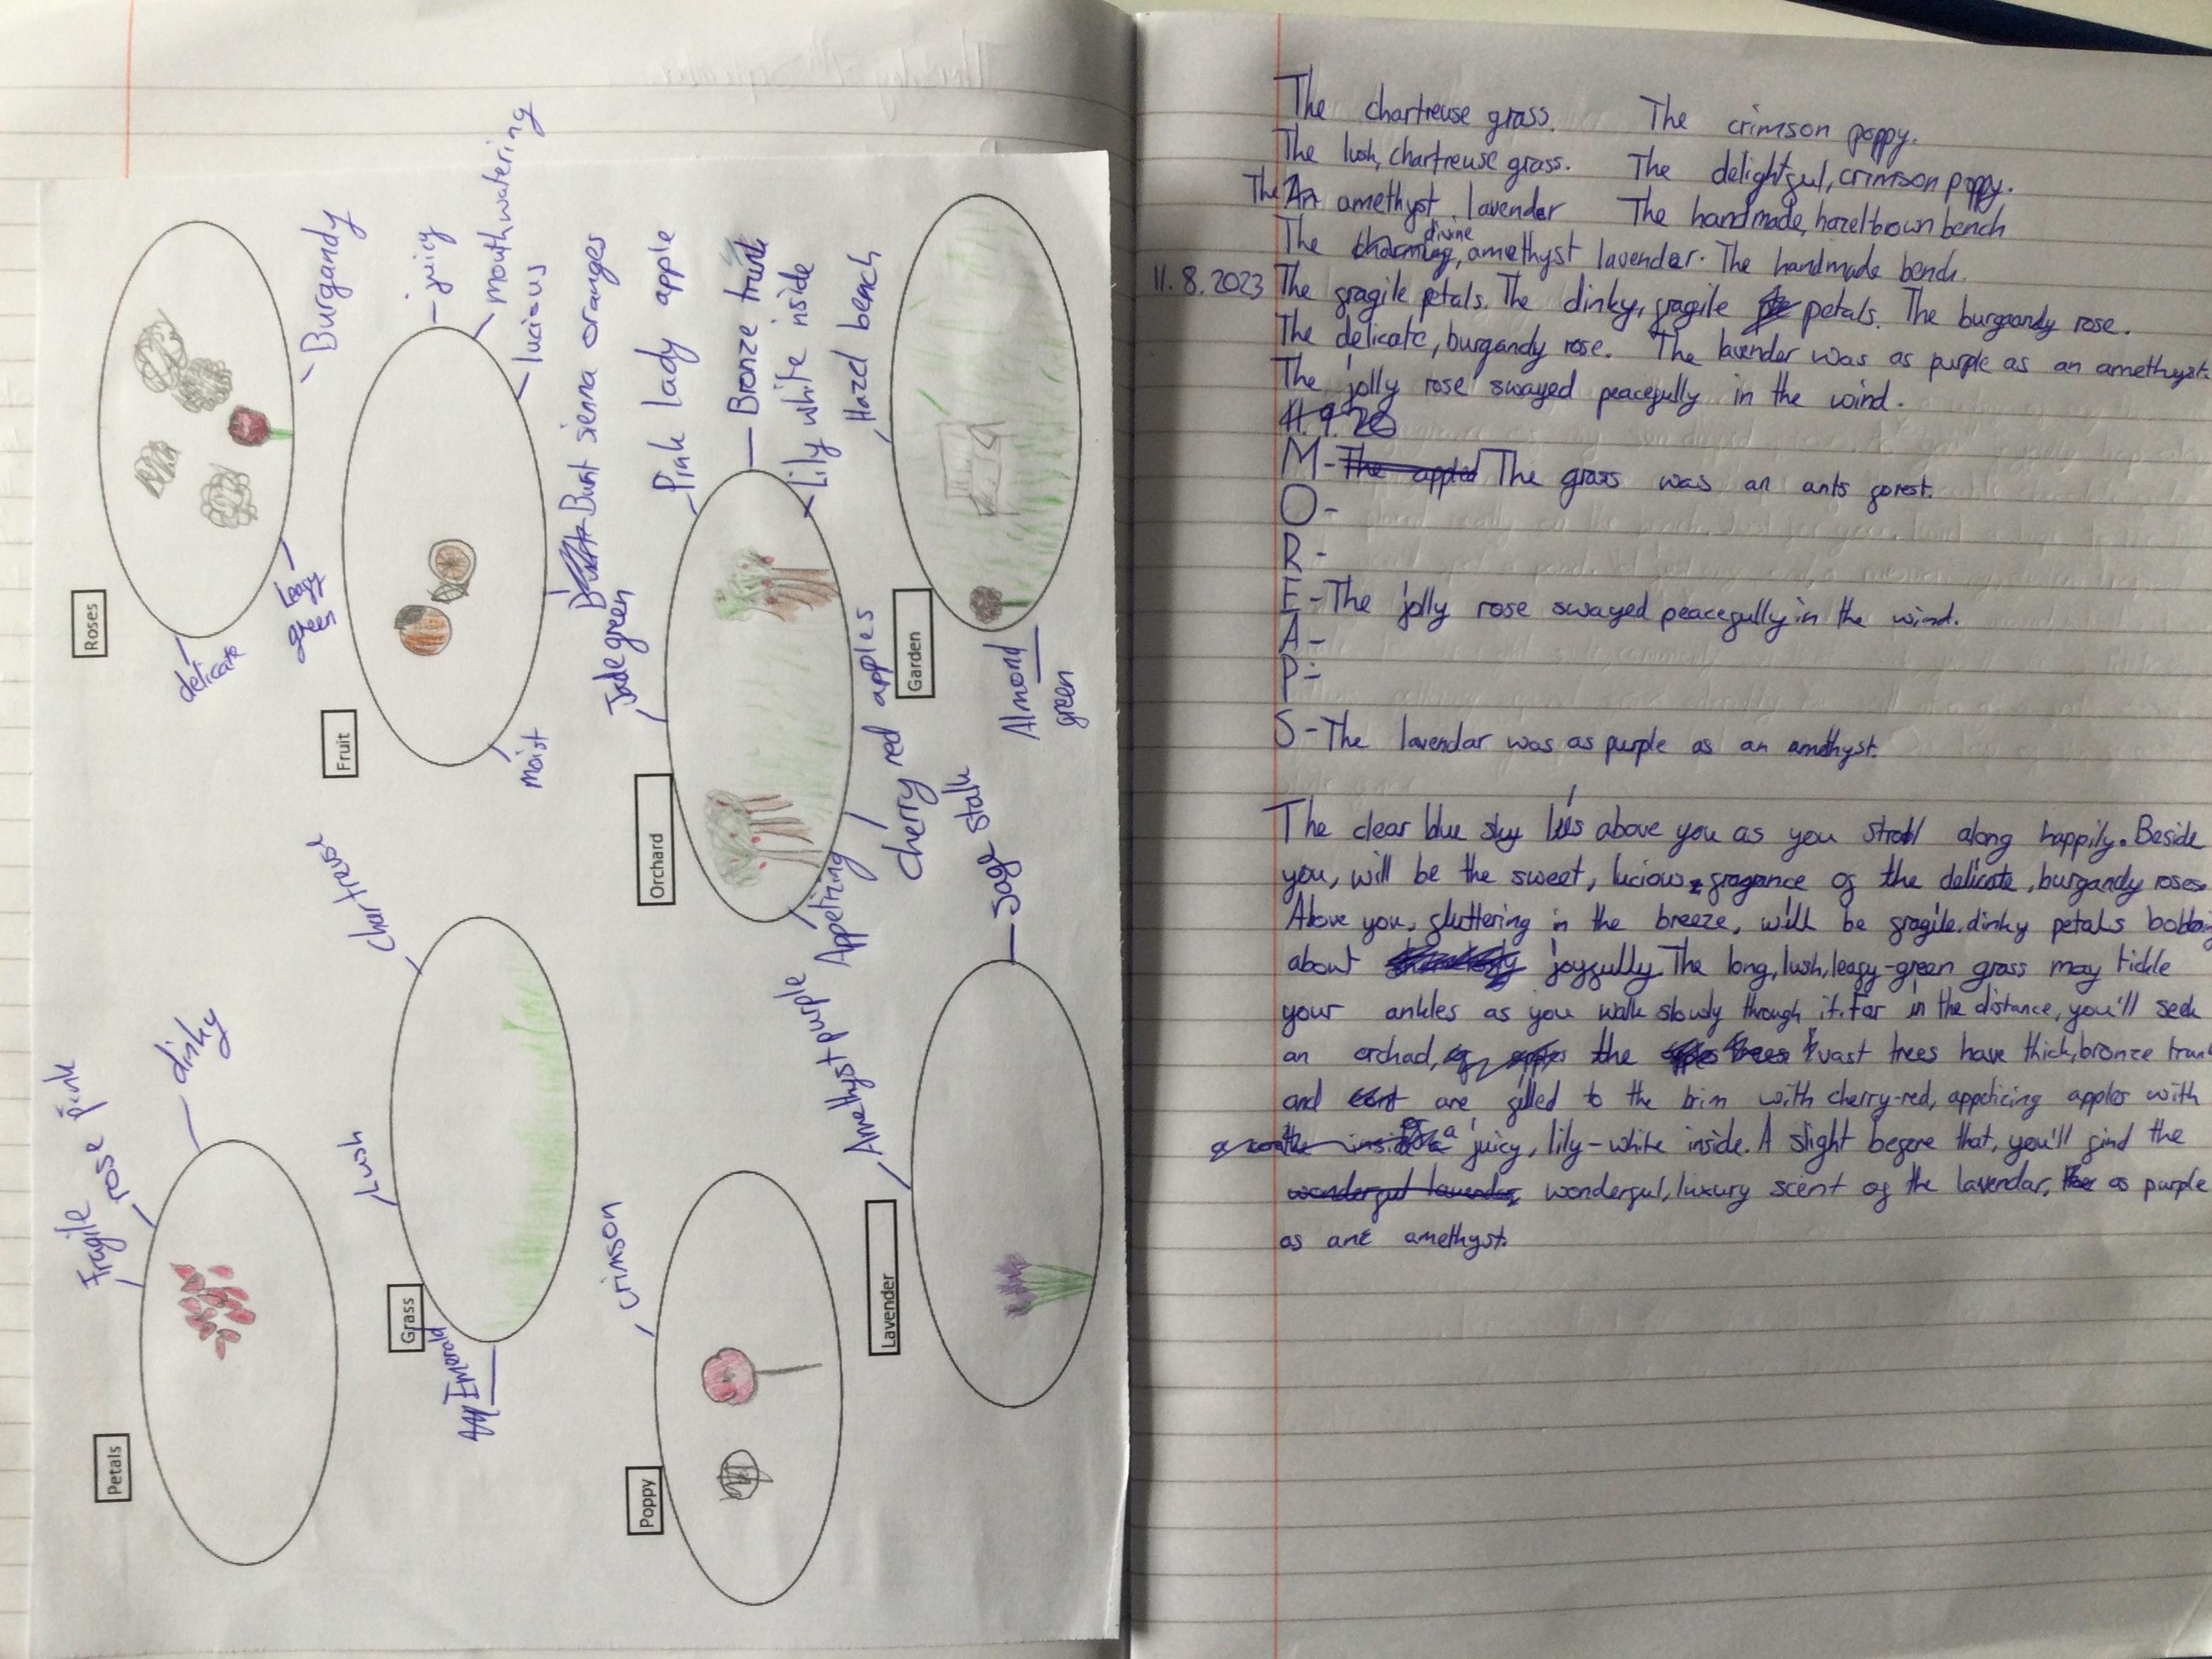 Roses
Burgandy
leafy
green
delicate
Fruit
- juicy
mouthwatering
lucious
Burnt sienna oranges
moist
Orchard
Jade green
Pink lady apple
Bronze trunk
Lily white inside
cherry red apples
Appetizing
Garden
Hazel bench
Almond
green
Petals
Fragile
rose pink
dinky
Grass
Lush
chartreuse
Emerald
Poppy
crimson
Lavender
Amethyst purple
Sage stalk
The chartreuse grass. The crimson poppy.
The lush, chartreuse grass. The delightful, crimson poppy.
The An amethyst lavender The handmade, hazelbrown bench
divine
The charming, amethyst lavender. The handmade bench.
11.8.2023 The fragile petals. The dinky, fragile petals. The burgandy rose.
The delicate, burgandy rose. The lavender was as purple as an amethyst.
The jolly rose swayed peacefully in the wind.
11.9.20
M- The apples The grass was an ants forest.
O-
R-
E- The jolly rose swayed peacefully in the wind.
A-
P-
S- The lavendar was as purple as an amethyst.
The clear blue sky lies above you as you stroll along happily. Beside
you, will be the sweet, lucious fragance of the delicate, burgandy roses
Above you, fluttering in the breeze, will be fragile, dinky petals bobbing
about joyfully. The long, lush, leafy-green grass may tickle
your ankles as you walk slowly through it. Far in the distance, you'll seek
an orchad, the trees vast trees have thick, bronze trunk
and are filled to the brim with cherry-red, appeticing apples with
a juicy, lily-white inside. A slight before that, you'll find the
wonderful lavender, wonderful, luxury scent of the lavendar, as purple
as an amethyst.